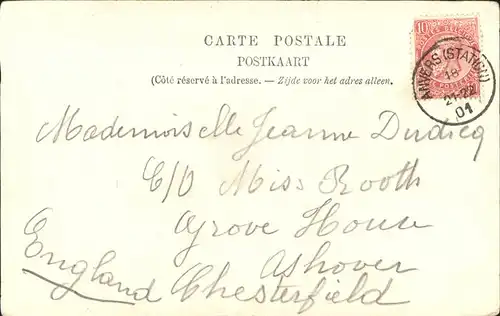 CARTE POSTALE
POSTKAART
(Côté réservé à l'adresse. — Zijde voor het adres alleen.
10
ANVERS (STATION)
18
21-22
01
Mademoiselle Jeanne Dudicq
C/O Miss Rooth
Grove House
Ashover
England Chesterfield